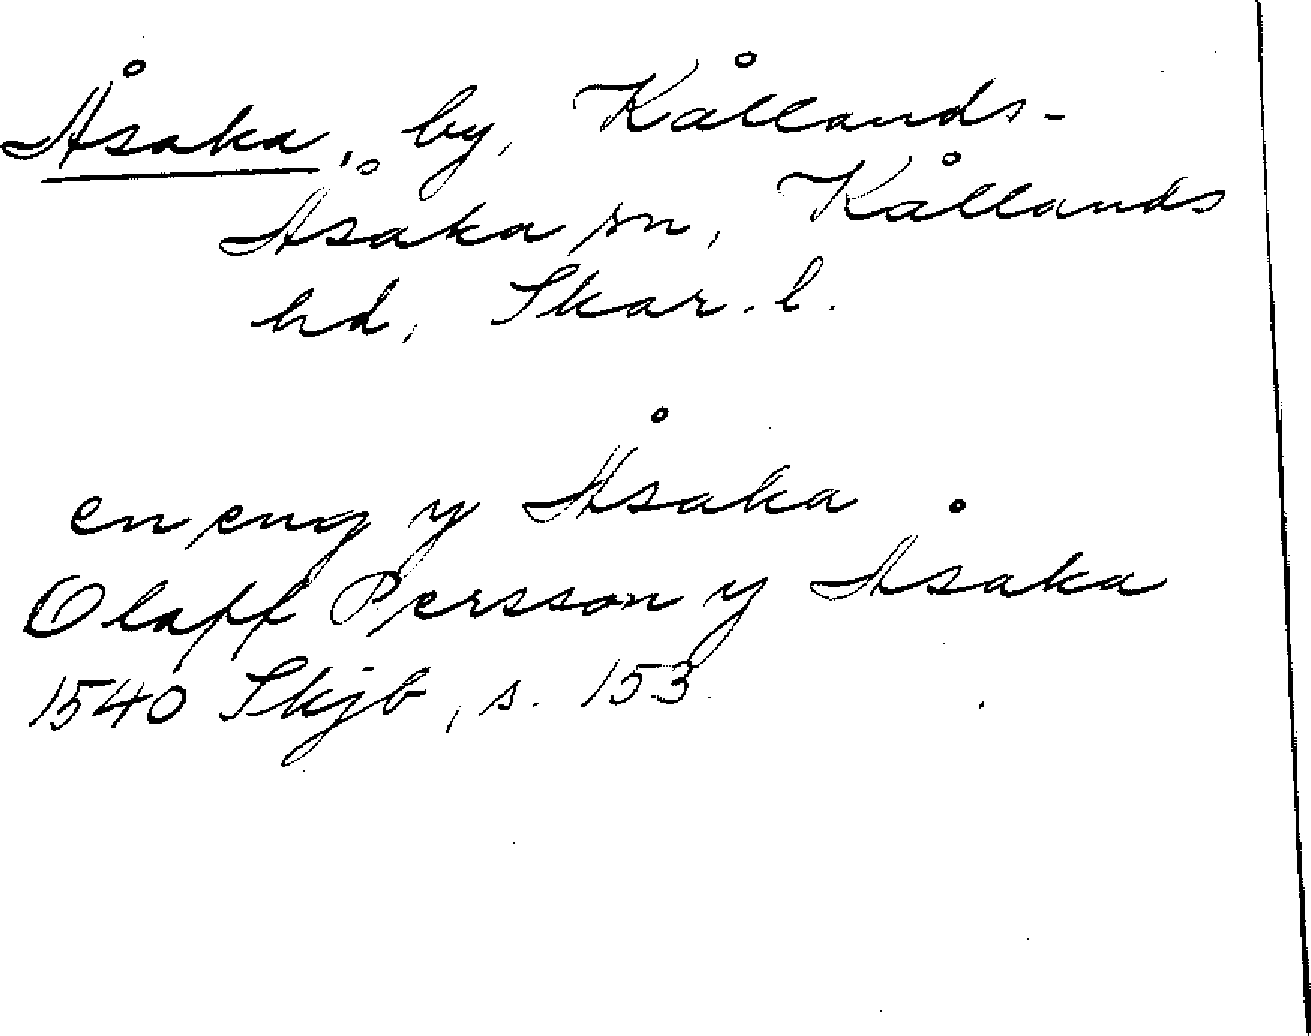 Åsaka, by, Kållands-
Åsaka sn, Kållands
hd, Skar. l.
en eng y Åsaka
Olaff Persson y Åsaka
1540 Skjb, s. 153